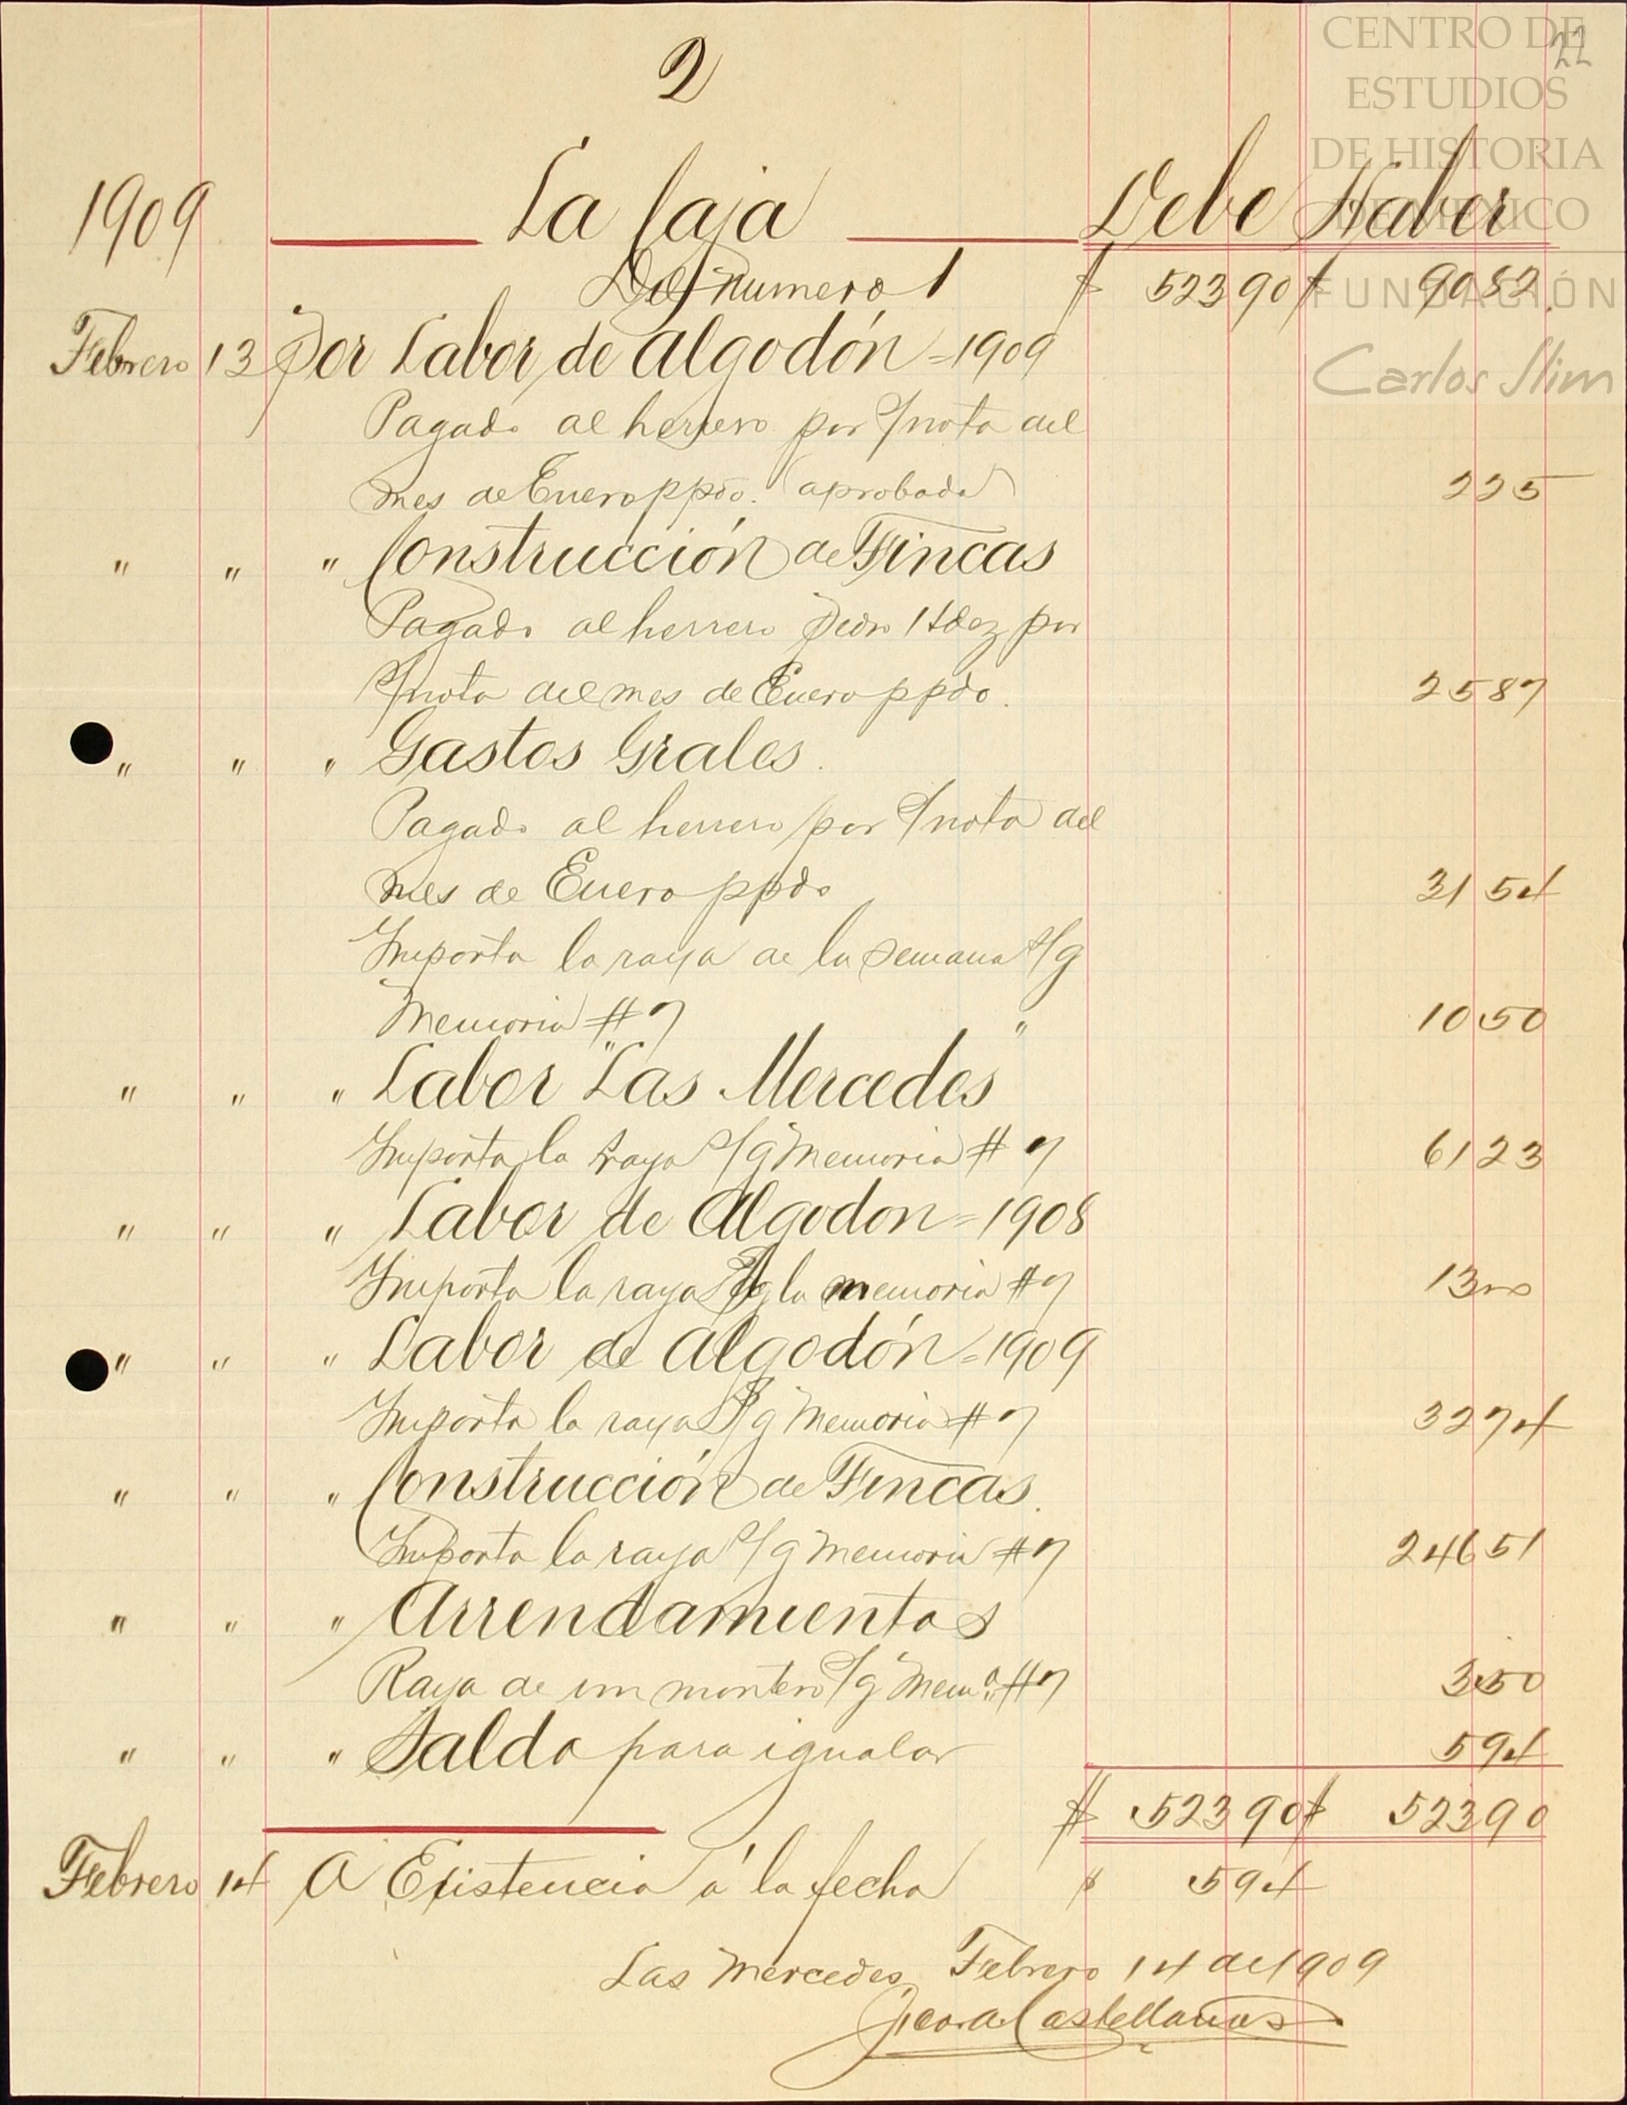 2
22
CENTRO DE
ESTUDIOS
DE HISTORIA
DE MÉXICO
FUNDACIÓN
Carlos Slim
1909 La Caja Debe Haber
Del numero 1 $ 523 90 $ 90 82
Febrero 13 Por Labor de Algodón = 1909
Pagado al herrero por s/nota del
mes de Enero ppdo. (aprobada) 2 25
" " " Construcción de Fincas
Pagado al herrero Pedro Hdez por
s/nota del mes de Enero ppdo. 25 87
" " " Gastos Grales.
Pagado al herrero por s/nota del
mes de Enero ppdo 31 54
Importa la raya de la semana s/g
Memoria # 7 10 50
" " " Labor "Las Mercedes"
Importa la raya s/g Memoria # 7 61 23
" " " Labor de Algodon = 1908
Importa la raya s/g la memoria # 7 13 00
" " " Labor de Algodón = 1909
Importa la raya s/g Memoria # 7 32 74
" " " Construcción de Fincas.
Importa la raya s/g Memoria # 7 246 51
" " " Arrendamientos
Raya de un montero s/g Mema. # 7 3 50
" " " Saldo para igualar 5 94
$ 523 90 $ 523 90
Febrero 14 A Existencia á la fecha $ 5 94
Las Mercedes, Febrero 14 de 1909
Castellanos